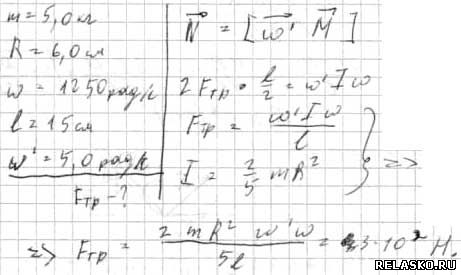 m = 5,0 кг
R = 6,0 см
ω = 1250 рад/с
l = 15 см
ω' = 5,0 рад/с
Fтр - ?
N⃗ = [ω⃗' M⃗]
2Fтр · l/2 = ω' I ω
Fтр = ω' I ω / l
I = 2/5 mR² } =>
=> Fтр = 2 mR² ω'ω / 5l = 3·10² Н.
RELASKO.RU